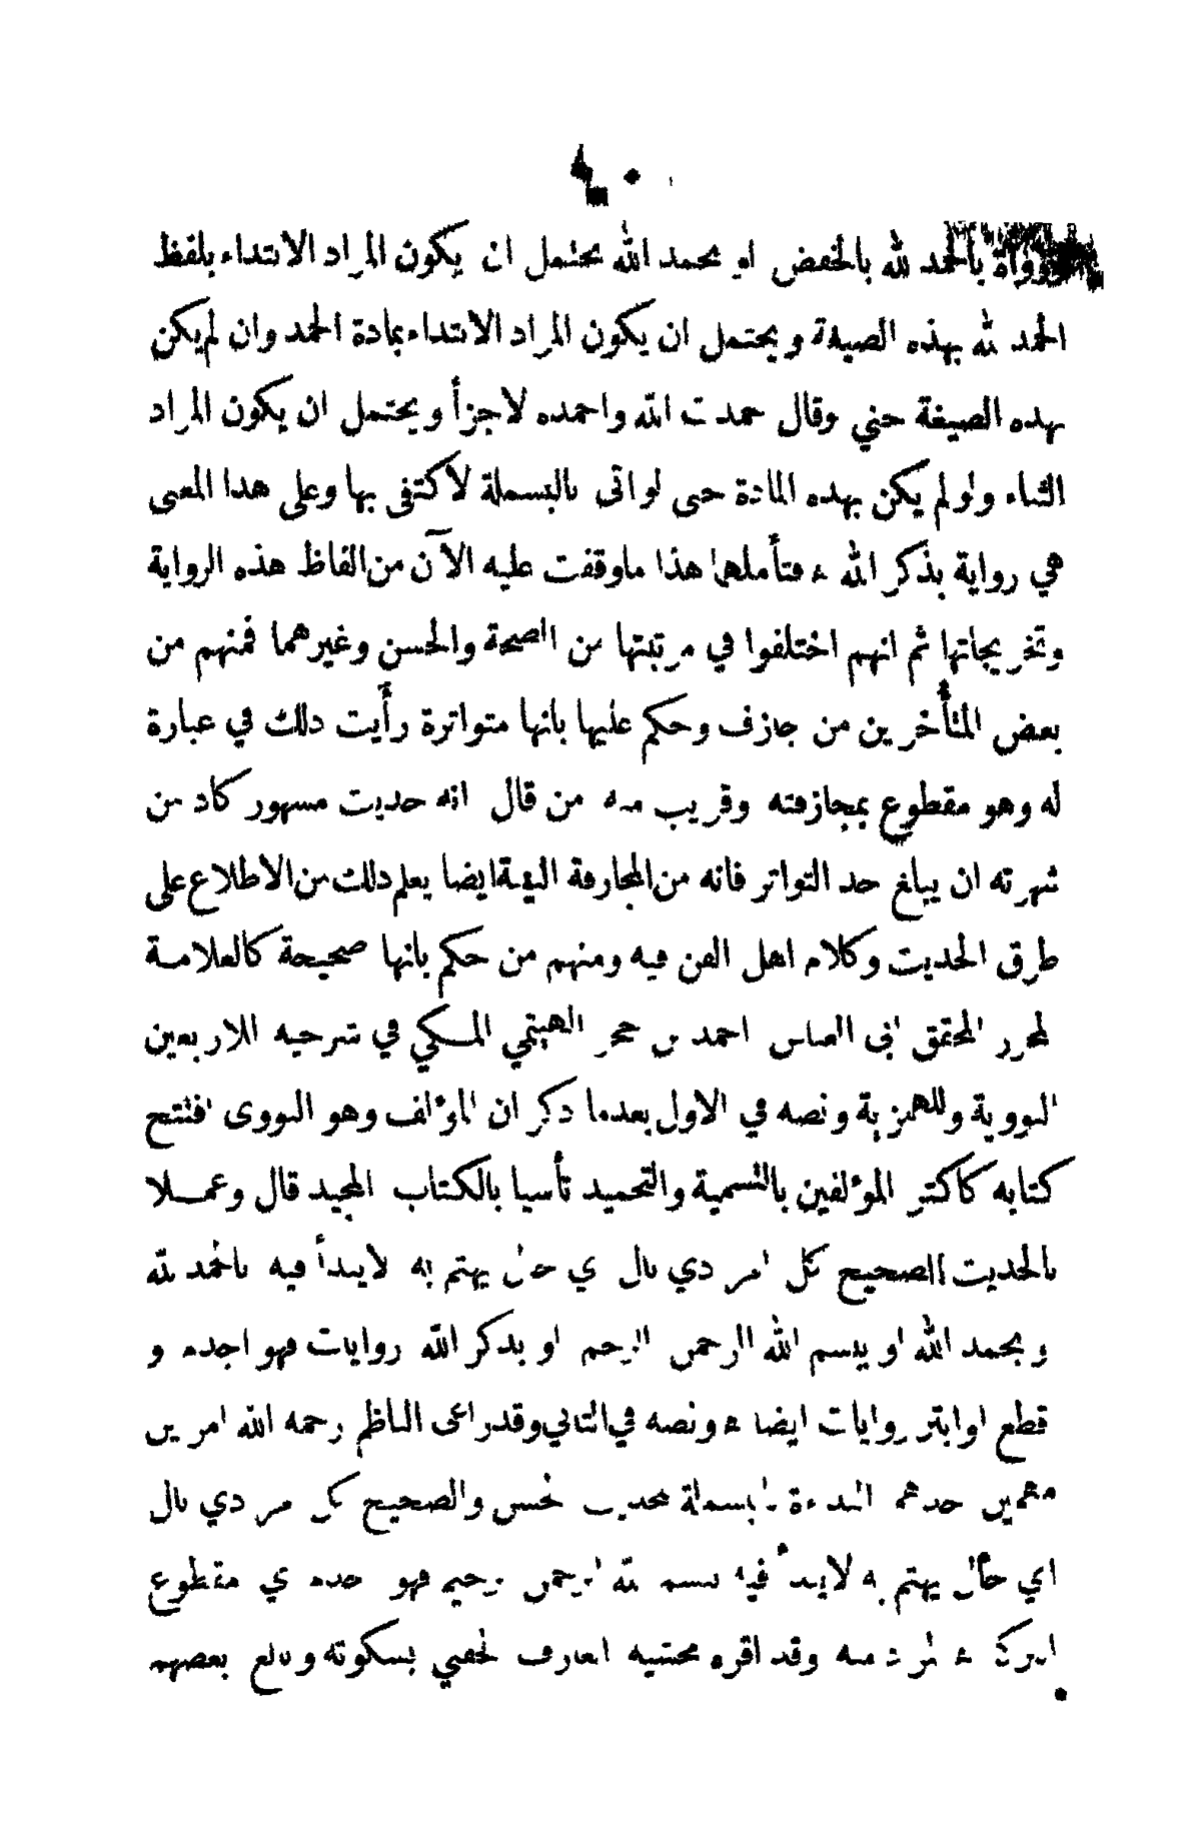 ورواة بالحمد لله بالخفض او بحمد الله يحتمل ان يكون المراد الابتداء بلفظ
الحمد لله بهذه الصيغة ويحتمل ان يكون المراد الابتداء بمادة الحمد وان لم يكن
بهذه الصيغة حتى لوقال حمدت الله واحمده لاجزأ ويحتمل ان يكون المراد
الثناء ولو لم يكن بهذه المادة حتى لو اتى بالبسملة لاكتفى بها وعلى هذا المعنى
هي رواية بذكر الله ء فتأملها هذا ماوقفت عليه الآن من الفاظ هذه الرواية
وتخريجاتها ثم انهم اختلفوا في مرتبتها من الصحة والحسن وغيرهما فمنهم من
بعض المتأخرين من جازف وحكم عليها بانها متواترة رأيت ذلك في عبارة
له وهو مقطوع بمجازفته وقريب منه من قال انه حديث مشهور كاد من
شهرته ان يبلغ حد التواتر فانه من المجازفة البينة ايضا يعلم ذلك من الاطلاع على
طرق الحديث وكلام اهل الفن فيه ومنهم من حكم بانها صحيحة كالعلامة
المحرر المحقق ابى العباس احمد بن حجر الهيتمي المكي في شرحيه للاربعين
النووية وللهمزية ونصه في الاول بعدما ذكر ان المؤلف وهو النووى افتتح
كتابه كاكثر المؤلفين بالتسمية والتحميد تأسيا بالكتاب المجيد قال وعملا
بالحديث الصحيح كل امر ذي بال اي حال يهتم به لايبدأ فيه بالحمد لله
وبحمد الله او ببسم الله الرحمن الرحيم او بذكر الله روايات فهو اجذم و
قطع او ابتر روايات ايضا ء ونصه في الثاني وقد راعى الناظم رحمه الله امرين
مهمين احدهما البداءة بالبسملة لحديث الحسن والصحيح كل امر ذي بال
اي حال يهتم به لايبدأ فيه ببسم الله الرحمن الرحيم فهو اجذم اي مقطوع
البركة ء المراد منه وقد اقره محشيه العارف الحفني بسكوته وبالغ بعضهم